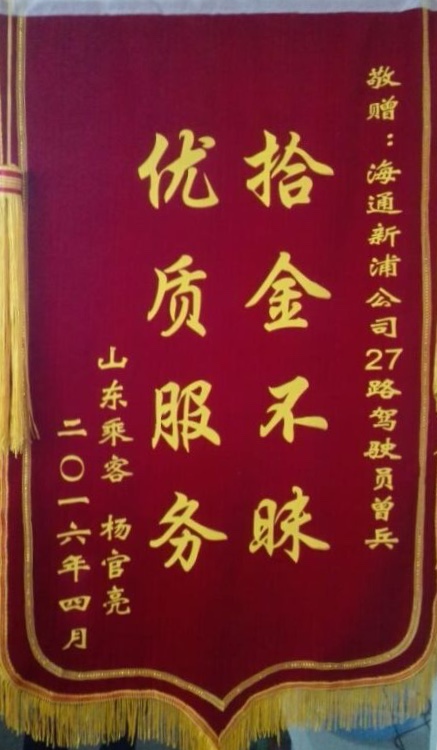 敬赠：海通新浦公司27路驾驶员曾兵
拾金不昧
优质服务
山东乘客 杨官亮
二〇一六年四月